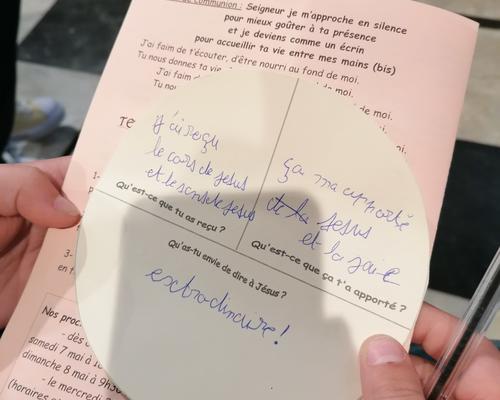 de communion : Seigneur je m'approche en silence
pour mieux goûter à ta présence
et je deviens comme un écrin
pour accueillir ta vie entre mes mains (bis)
J'ai faim de t'écouter, d'être nourri au fond de moi.
Tu nous donnes ta vie
de moi.
J'ai faim
Tu nou
moi.
TE
j'ai reçu
le cors de jesus
et le sens de jesus
Qu'est-ce que tu as reçu ?
ça ma apporté
jesus
et la joie
Qu'est-ce que ça t'a apporté ?
Qu'as-tu envie de dire à Jésus ?
extrodinaire !
1-
3-
en
Nos proc
- dès
samedi 7 mai à
dimanche 8 mai à 9h30
- le mercredi
(horaires